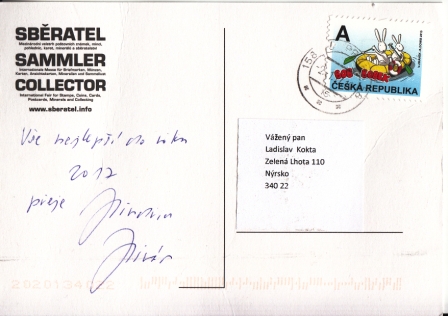 SBĚRATEL
Mezinárodní veletrh poštovních známek, mincí,
pohlednic, karet, minerálů a sběratelství
SAMMLER
Internationale Messe für Briefmarken, Münzen,
Karten, Ansichtskarten, Mineralien und Sammeltum
COLLECTOR
International Fair for Stamps, Coins, Cards,
Postcards, Minerals and Collecting
www.sberatel.info
A
BOB
A
BOBEK
ČESKÁ REPUBLIKA
Vážený pan
Ladislav Kokta
Zelená Lhota 110
Nýrsko
340 22
Vše nejlepší do roku
2017
přeje